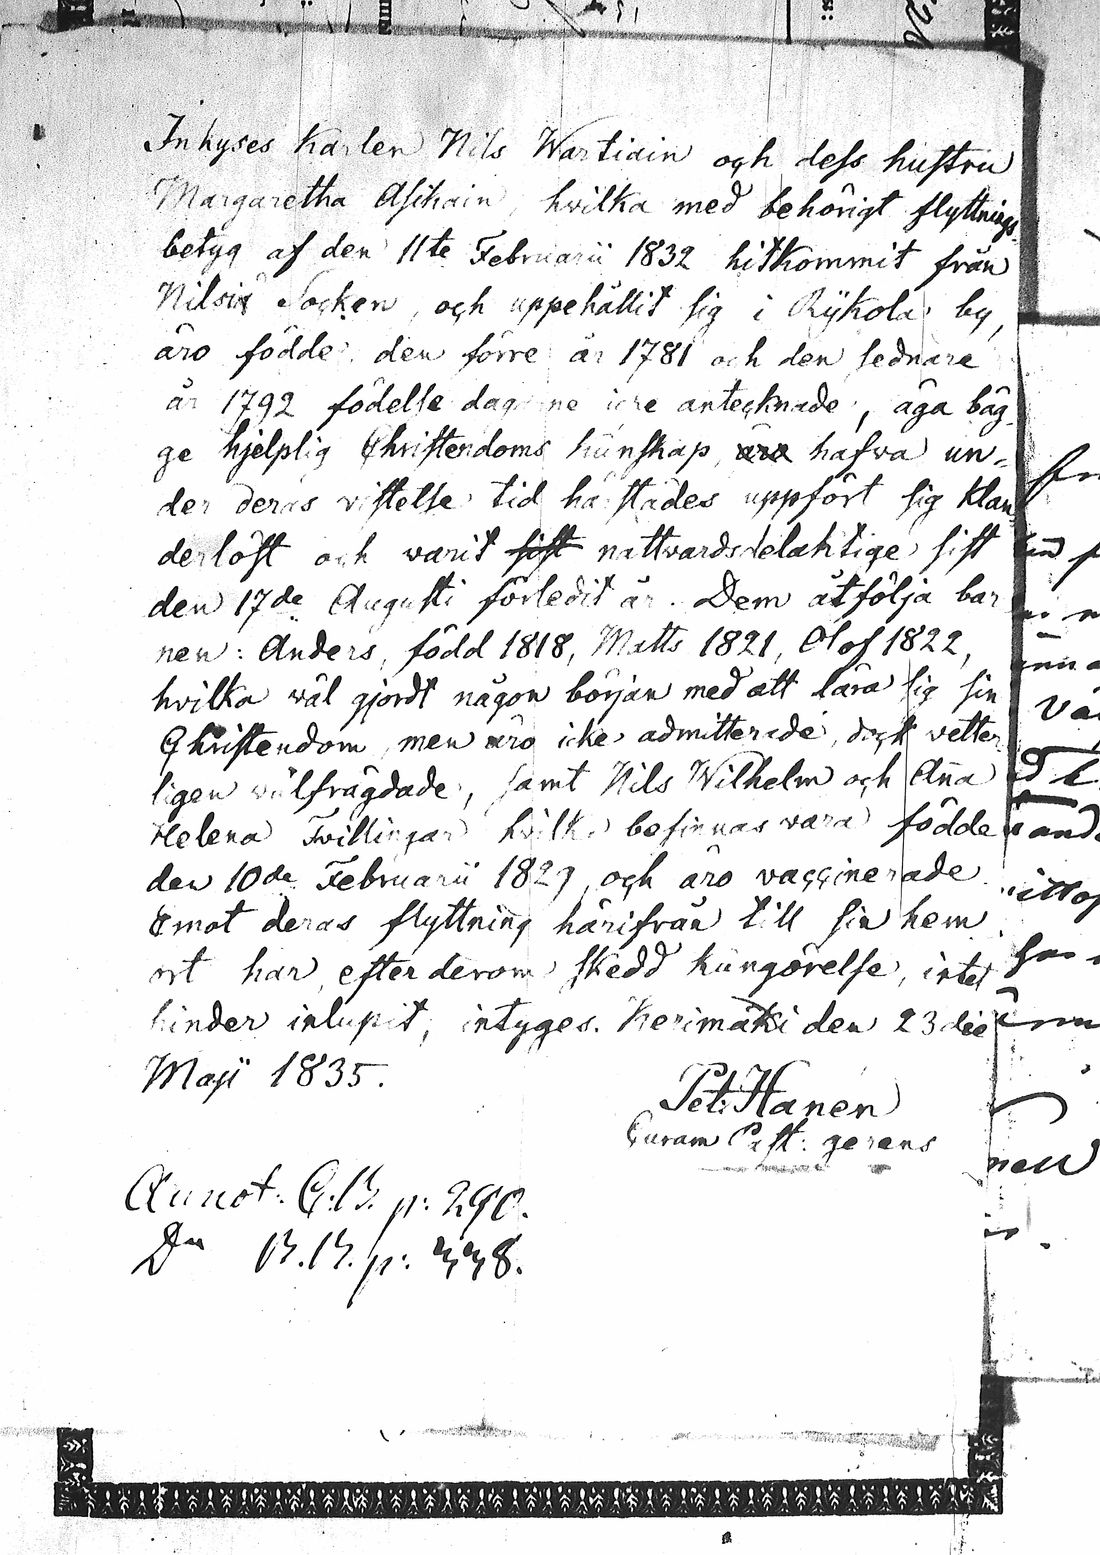 Inhyses Karlen Nils Wartiain och dess hustru
Margaretha Asikain, hvilka med behörigt flyttnings-
betyg af den 11te Februarii 1832 hitkommit från
Nilsiä Socken, och uppehållit sig i Rykola by,
äro födde: den förre år 1781 och den sednare
år 1792 födelse dagarne icke antecknade, äga båg-
ge hjelplig Christendoms kunskap, hafva un-
der deras vistelse tid härstädes uppfört sig klan
derlöst och varit nattvardsdelaktige sist
den 17de Augusti förledit år. Dem åtfölja bar
nen: Anders, född 1818, Matts 1821, Olof 1822,
hvilka väl gjordt någon början med att lära sig sin
Christendom, men äro icke admitterade, dock vetter
ligen välfrägdade, samt Nils Wilhelm och Aña
Helena Tvillingar hvilka befinnas vara födde
den 10de Februarii 1829, och äro vaccinerade
Emot deras flyttning härifrån till sin hem
ort har, efter derom skedd kungörelse, intet
hinder inlupit, intyges. Kerimäki den 23die
Maji 1835.
Pet: Hanen
Curam Past: gerens
Annot: C.B. p: 290.
Do B.B. p: 338.